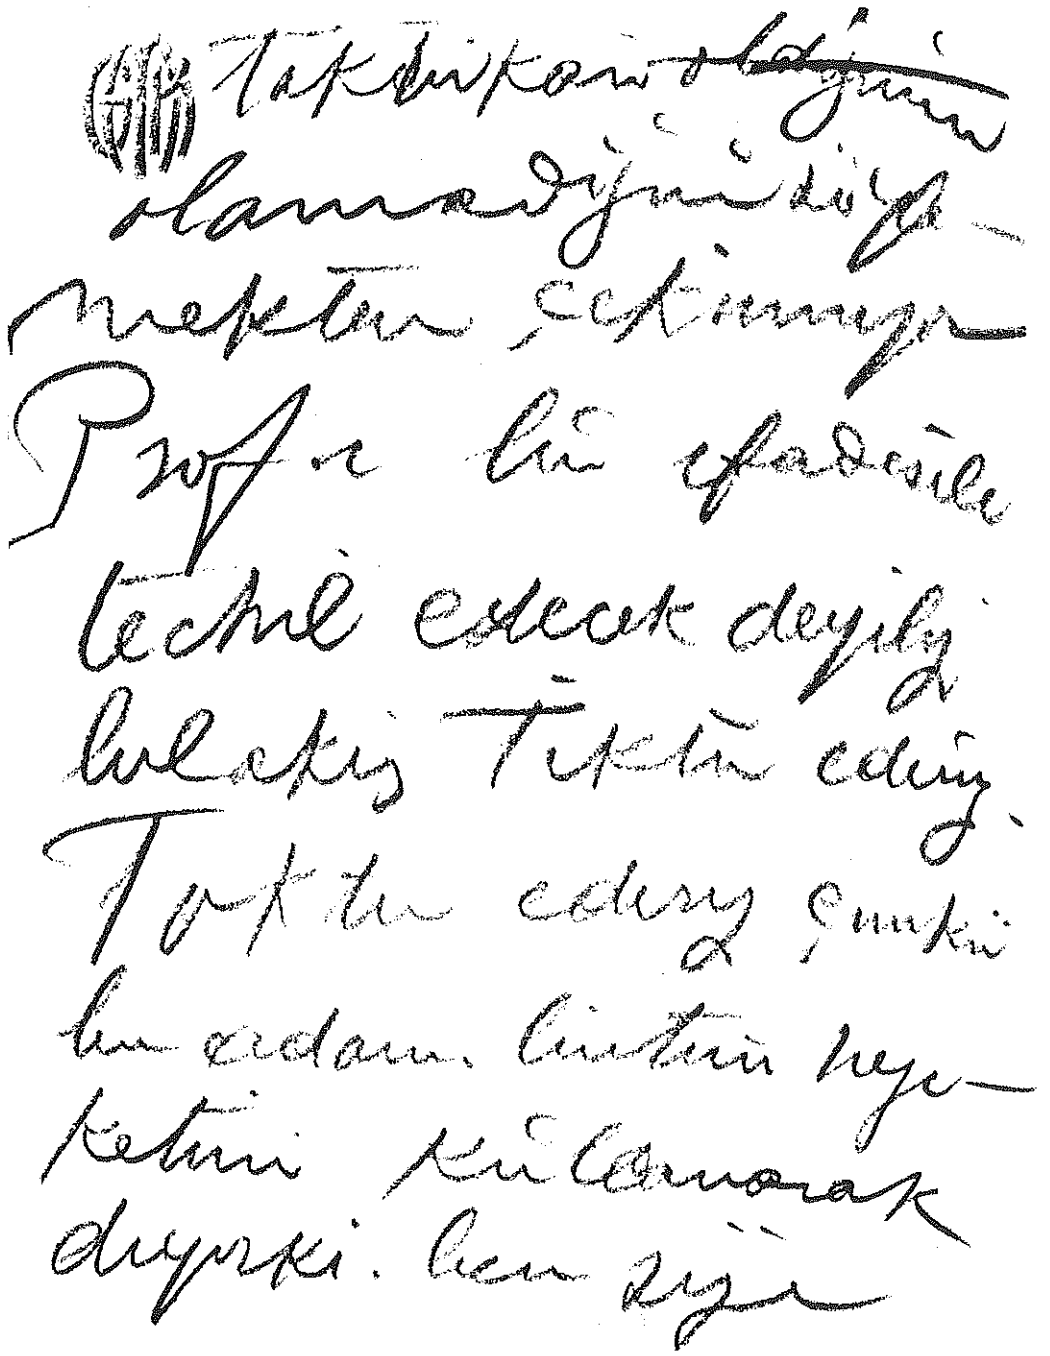 takdirkârı olduğunu
olamadığını söyle-
mekten çekinmiyor
Prof. e bu ifadesile
techil edecek deyiliz
bilakis Takdir ederiz.
Takdir ederiz çünkü
bu adam. bütün
ketini kullanarak
diyorki. ben size